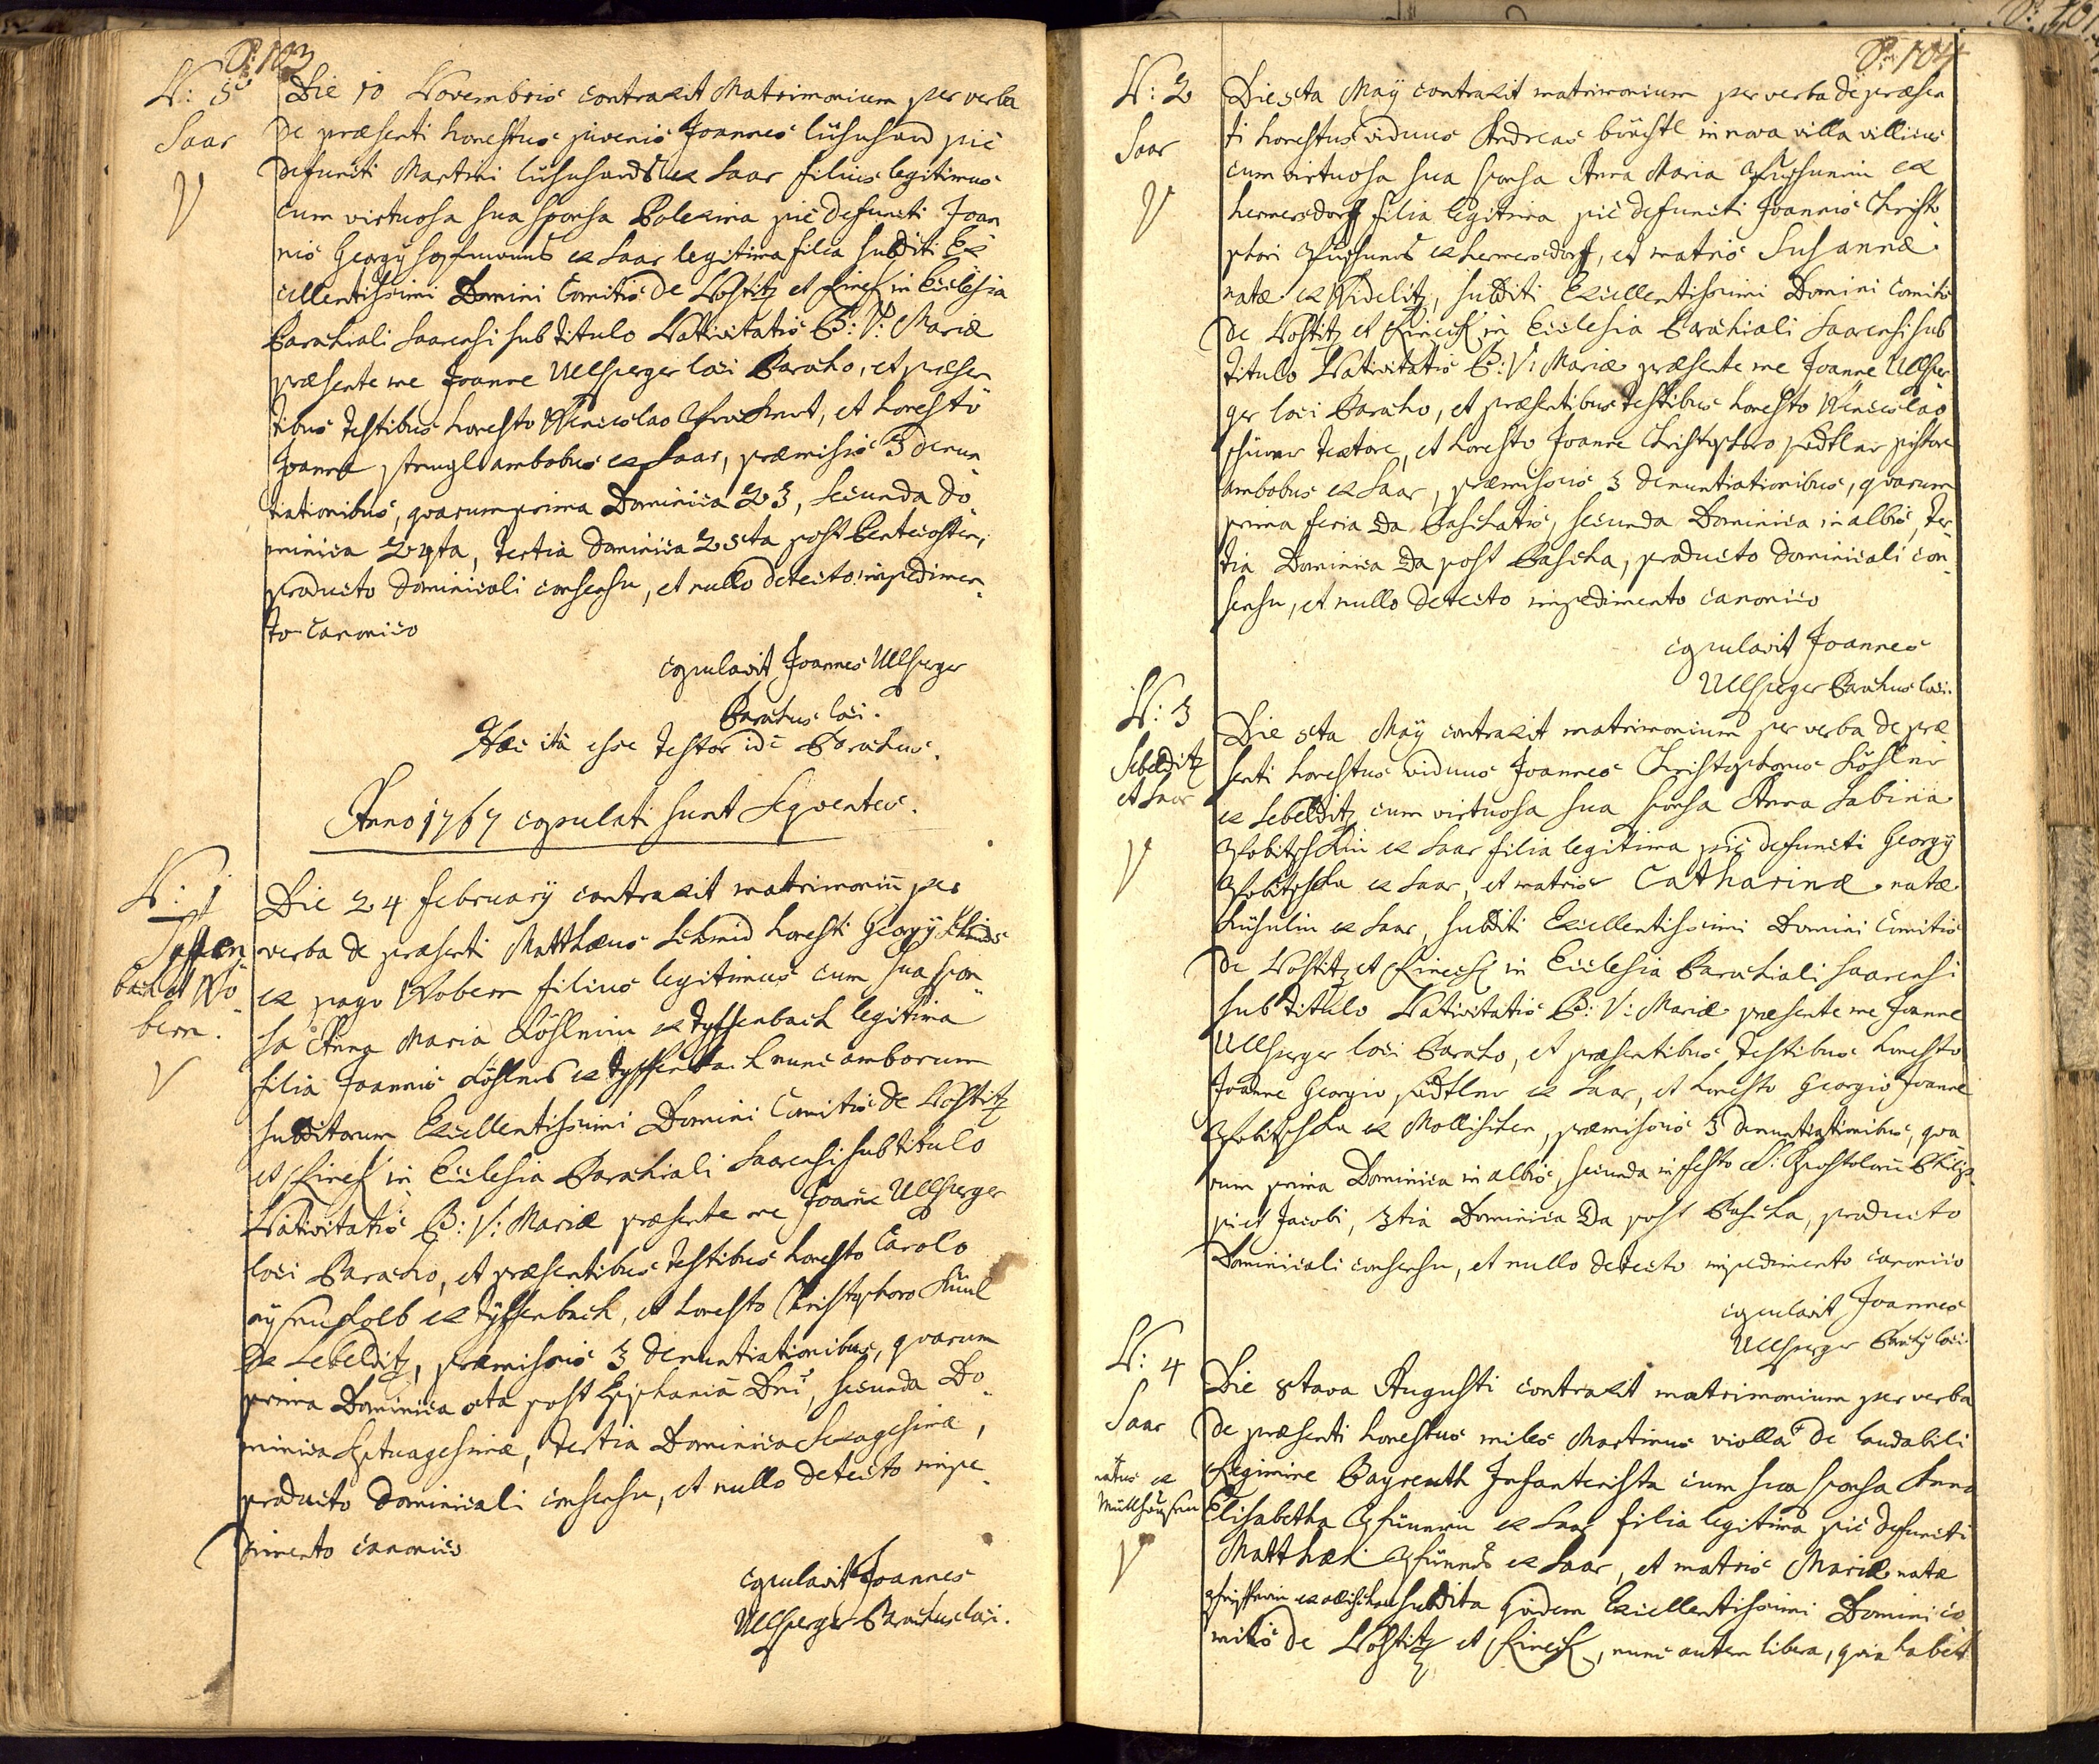 P: 103
N: 5
Saar
Die 10 Novembris contraxit Matrimonium per verba
de præsenti honestus juvenis Joannes pie
defuncti Martini ex Saar filius legitimus
cum virtuosa sua sponsa Polexina pie defuncti Joan
nis Georgÿ ex Saar legitima filia subditi Ex
cellentissimi Domini Comitis de Nostitz et Rineck in Ecclesia
Parochiali Saarensi sub titulo Nativitatis B: V: Mariæ
præsente me Joanne Ullsperger loci Parocho, et præsen
tibus testibus honesto Wenceslao et honesto
Joanne ambobus ex Saar, præmissis 3 denun
tiationibus, quarum prima Dominica 23, secunda Do
minica 24ta, tertia Dominica 25ta post Pentecosten,
producto dominicali consensu, et nullo detecto impedimen
to canonico
copulavit Joannes Ullsperger
Parochus loci.
Hæc ita esse testor idē Parochus.
Anno 1767 copulati sunt Seqventes.
N: 1
Tyssen
bach et Wo
bern.
Die 24 Februarÿ contraxit matrimoniū per
verba de præsenti Matthæus Schmid honesti Georgÿ Schmids
ex pago Wobern filius legitimus cum sua spon
sa Anna Maria Löhlnerin ex Tyssenbach legitima
filia Joannis Löhlners ex Tyssenbach nunc amborum
subditorum Excellentissimi Domini Comitis de Nostitz
et Rineck in Ecclesia Parochiali Saarensi sub titulo
Nativitatis B: V: Mariæ præsente me Joanne Ullsperger
loci Parocho, et præsentibus testibus honesto Carolo
ex Tyssenbach, et honesto Christophoro
ex Sebelditz, præmissis 3 denuntiationibus, quarum
prima Dominica 6ta post Epiphaniā Dni, secunda Do
minica Septuagesimæ, tertia Dominica Sexagesimæ,
producto dominicali consensu, et nullo detecto impe
dimento canonico
copulavit Joannes
Ullsperger Parochus loci.
P: 104
N: 2
Saar
Die 5ta Maÿ contraxit matrimonium per verba de præsen
ti honestus viduus Andreas in nova villa villicus
cum virtuosa sua sponsa Anna Maria ex
hermersdorff filia legitima pie defuncti Joannis Christo
phori ex hermersdorff, et matris Susannæ
natæ ex Widelitz, subditi Excellentissimi Domini Comitis
de Nostitz et Rineck in Ecclesia Parochiali Saarensi sub
titulo Nativitatis B: V: Mariæ præsente me Joanne Ullsper
ger loci Parocho, et præsentibus testibus honesto Wenceslao
textore, et honesto Joanne Christophoro pistore
ambobus ex Saar, præmissis 3 denuntiationibus, quarum
prima feria 2da Paschatis, secunda Dominica in albis, ter
tia Dominica 2da post Pascha, producto dominicali con
sensu, et nullo detecto impedimento canonico
copulavit Joannes
Ullsperger Parochus loci.
N: 3
Sebelditz
et Saar
Die 5ta Maÿ contraxit matrimonium per verba de præ
senti honestus viduus Joannes Christophorus Löhlner
ex Sebelditz cum virtuosa sua sponsa Anna Sabina
ex Saar filia legitima pie defuncti Georgÿ
ex Saar, et matris Catharinæ natæ
ex Saar, subditi Excellentissimi Domini Comitis
de Nostitz et Rineck in Ecclesia Parochiali Saarensi
sub titulo Nativitatis B: V: Mariæ præsente me Joanne
Ullsperger loci Parocho, et præsentibus testibus honesto
Joanne Georgio ex Saar, et honesto Georgio Joanne
ex Mollischen, præmissis 3 denuntiationibus, qua
rum prima Dominica in albis, secunda in festo S: Apostolorū Philip
pi et Jacobi, 3tia Dominica 2da post Pascha, producto
Dominicali consensu, et nullo detecto impedimento canonico
copulavit Joannes
Ullsperger loci.
N: 4
Saar
natus ex
Müllhausen
Die 8tava Augusti contraxit matrimonium per verba
de præsenti honestus miles Martinus violla de laudabili
Regimine Bayreuth Infanterista cum sua sponsa Anna
Elisabetha ex Saar filia legitima pie defuncti
Matthæi ex Saar, et matris Mariæ natæ
subdita quidem Excellentissimi Domini Co
mitis de Nostitz et Rineck, nunc autem libera, quia habet